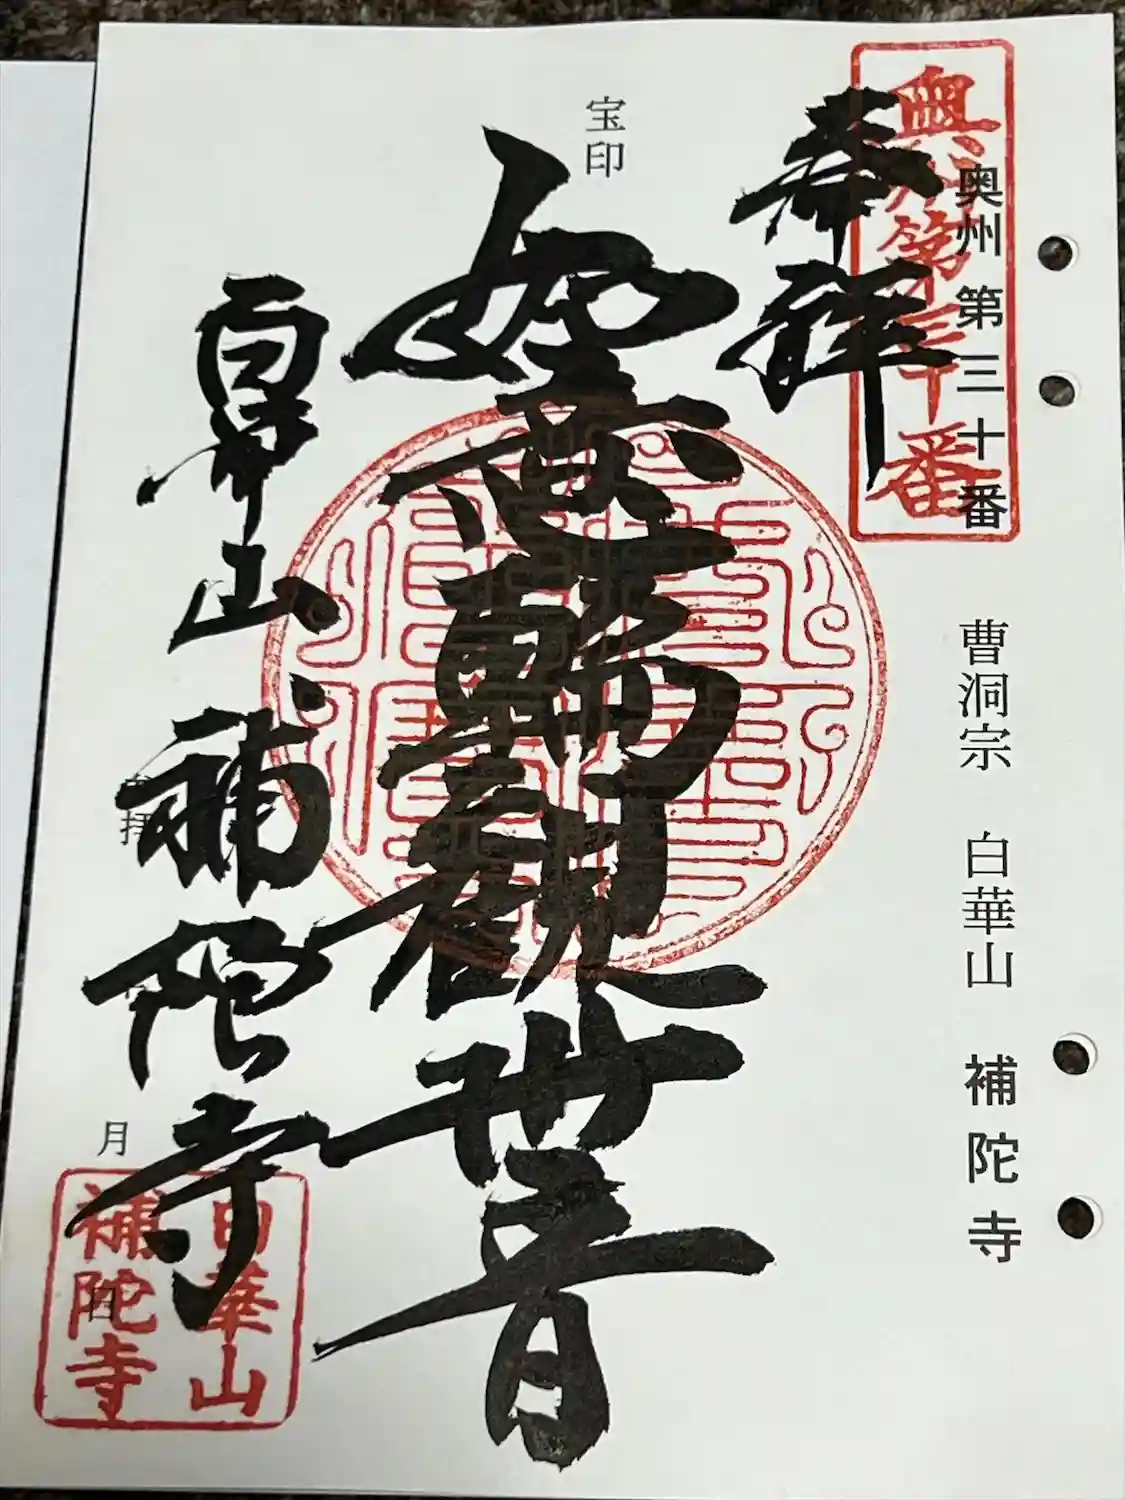 奥州第三十番
奥州第三十番 曹洞宗 白華山 補陀寺
奉拝
宝印
如意輪観世音
白華山 補陀寺
拝
月
日
白華山
補陀寺